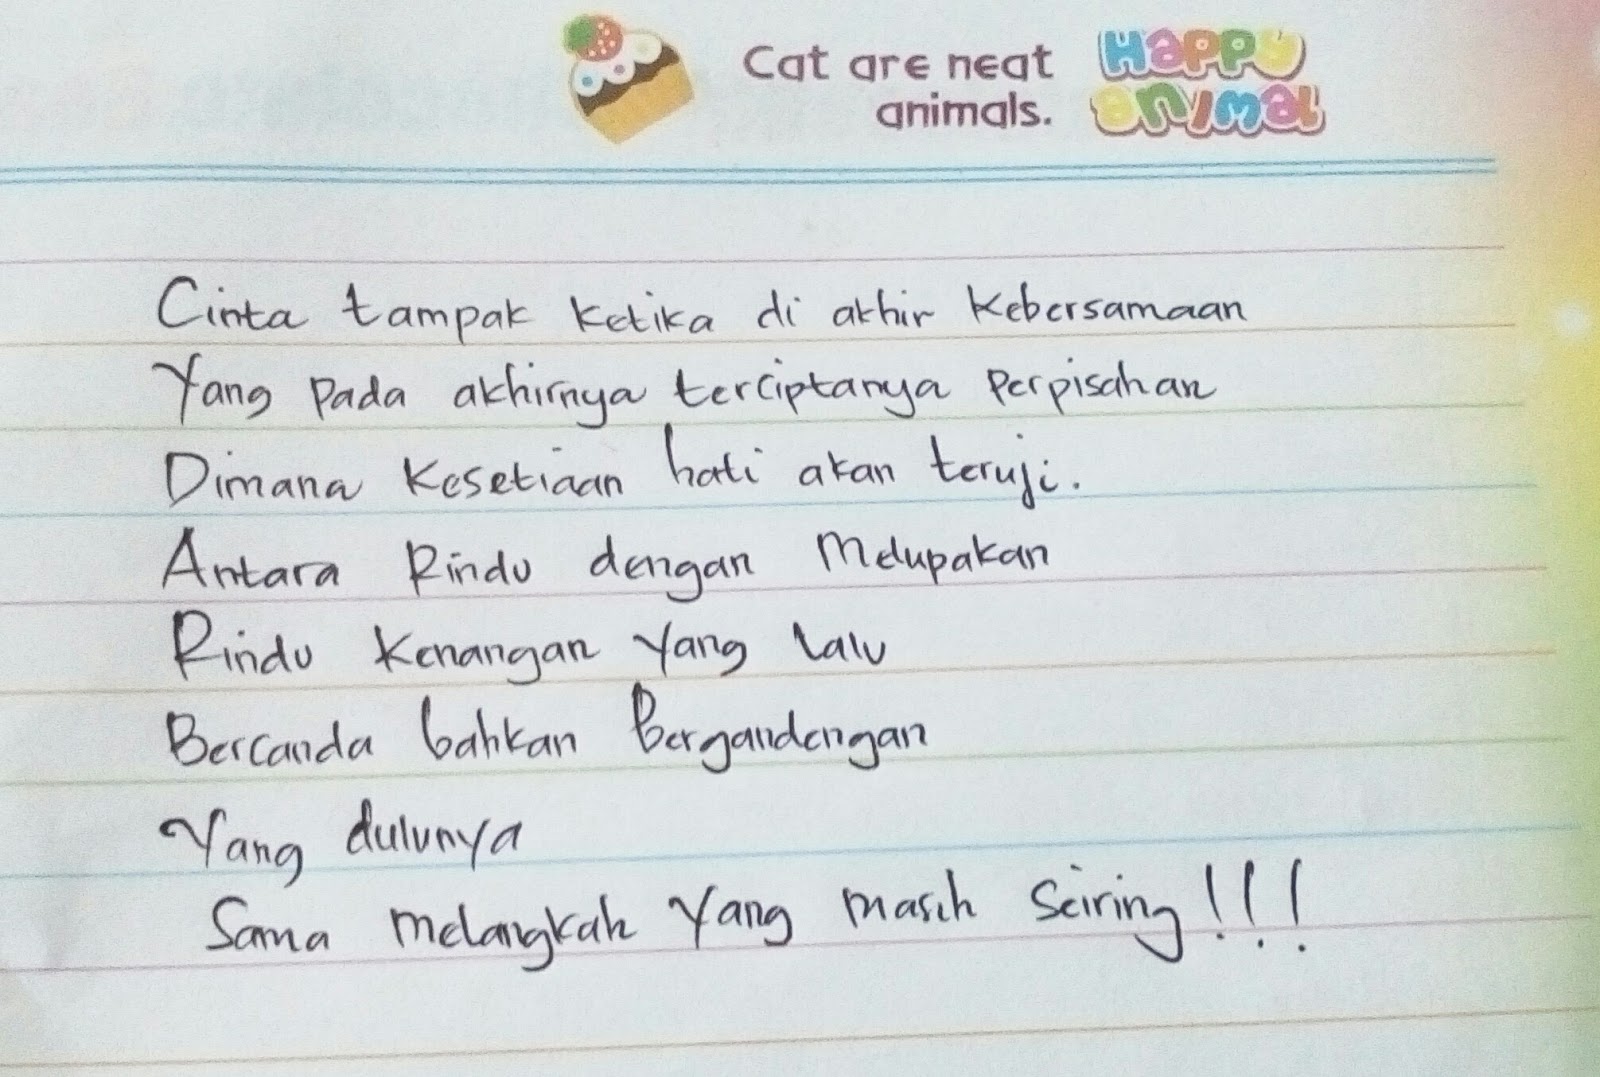 Cat are neat
animals.
HAPPY
ANIMAL
Cinta tampak ketika di akhir Kebersamaan
Yang Pada akhirnya terciptanya Perpisahan
Dimana Kesetiaan hati akan teruji.
Antara Rindu dengan Melupakan
Rindu Kenangan Yang lalu
Bercanda bahkan Bergandengan
Yang dulunya
Sama melangkah Yang masih Seiring!!!